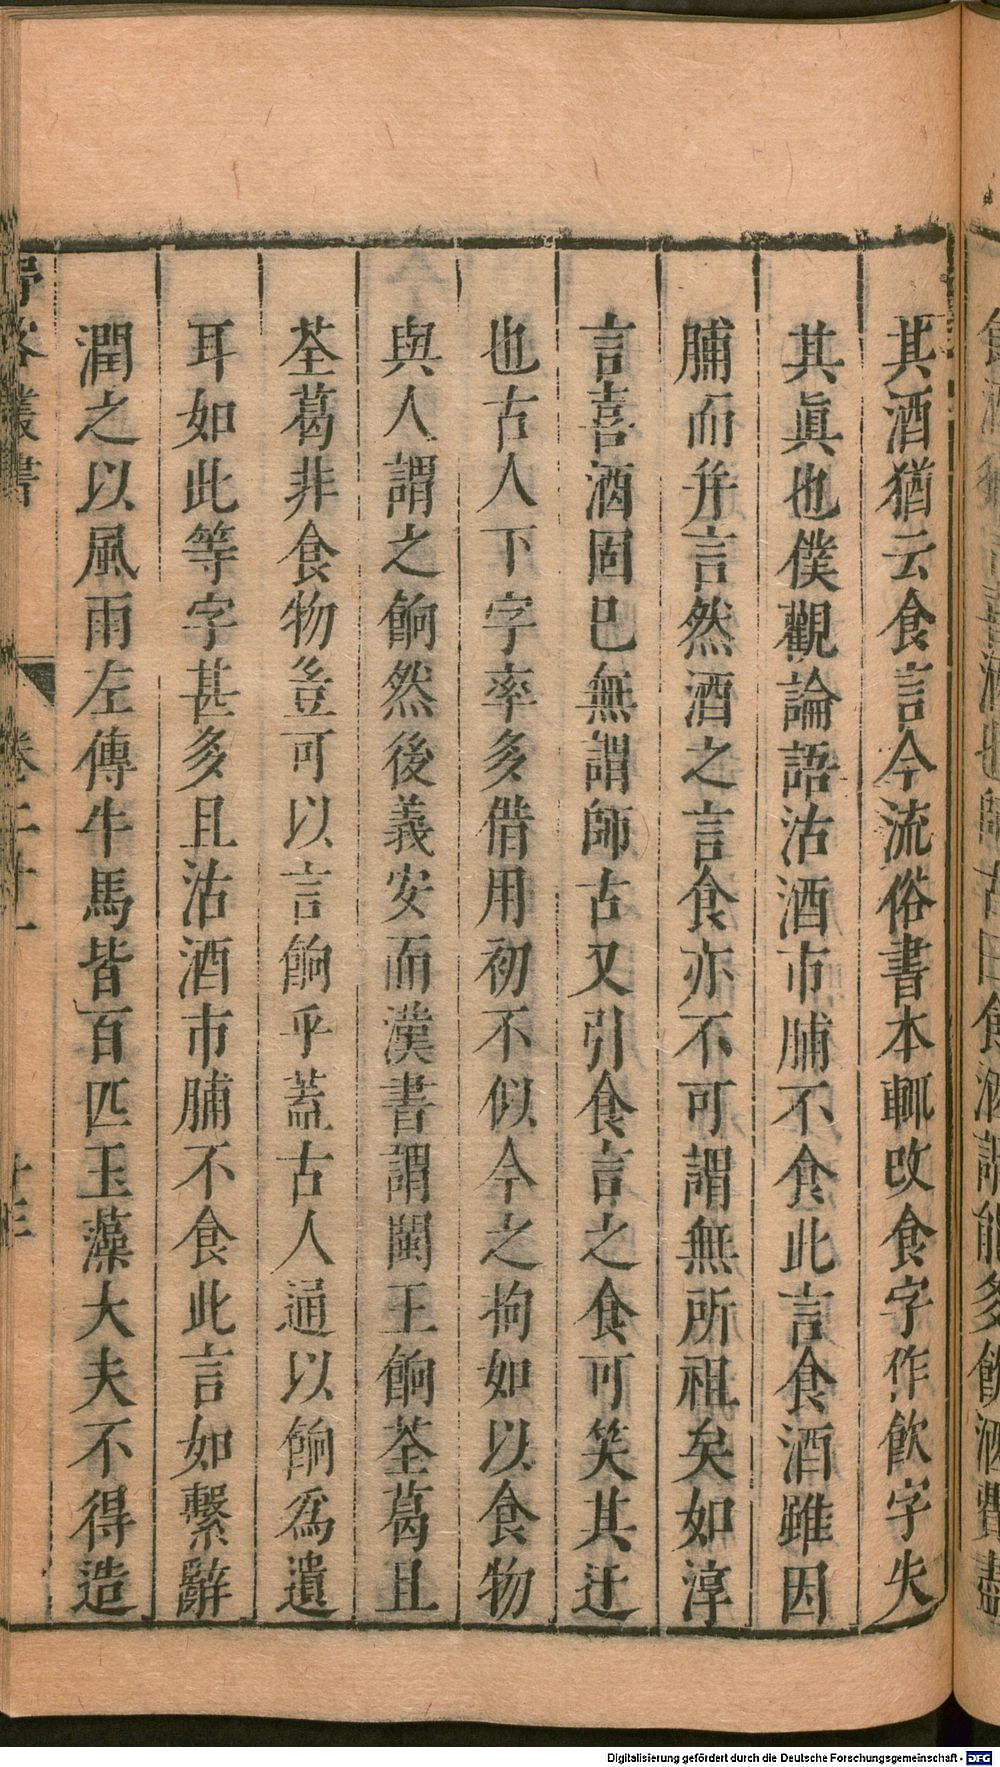 其酒猶云食言今流俗書本輒改食字作飲字失
其眞也僕觀論語沽酒市脯不食此言食酒雖因
脯而幷言然酒之言食亦不可謂無所祖矣如淳
言喜酒固已無謂師古又引食言之食可笑其迂
也古人下字率多借用初不似今之拘如以食物
與人謂之餉然後義安而漢書謂閩王餉荃葛且
荃葛非食物豈可以言餉乎蓋古人通以餉爲遺
耳如此等字甚多且沽酒市脯不食此言如繫辭
潤之以風雨左傳牛馬皆百匹玉藻大夫不得造
叢書 卷二十一
Digitalisierung gefördert durch die Deutsche Forschungsgemeinschaft - DFG